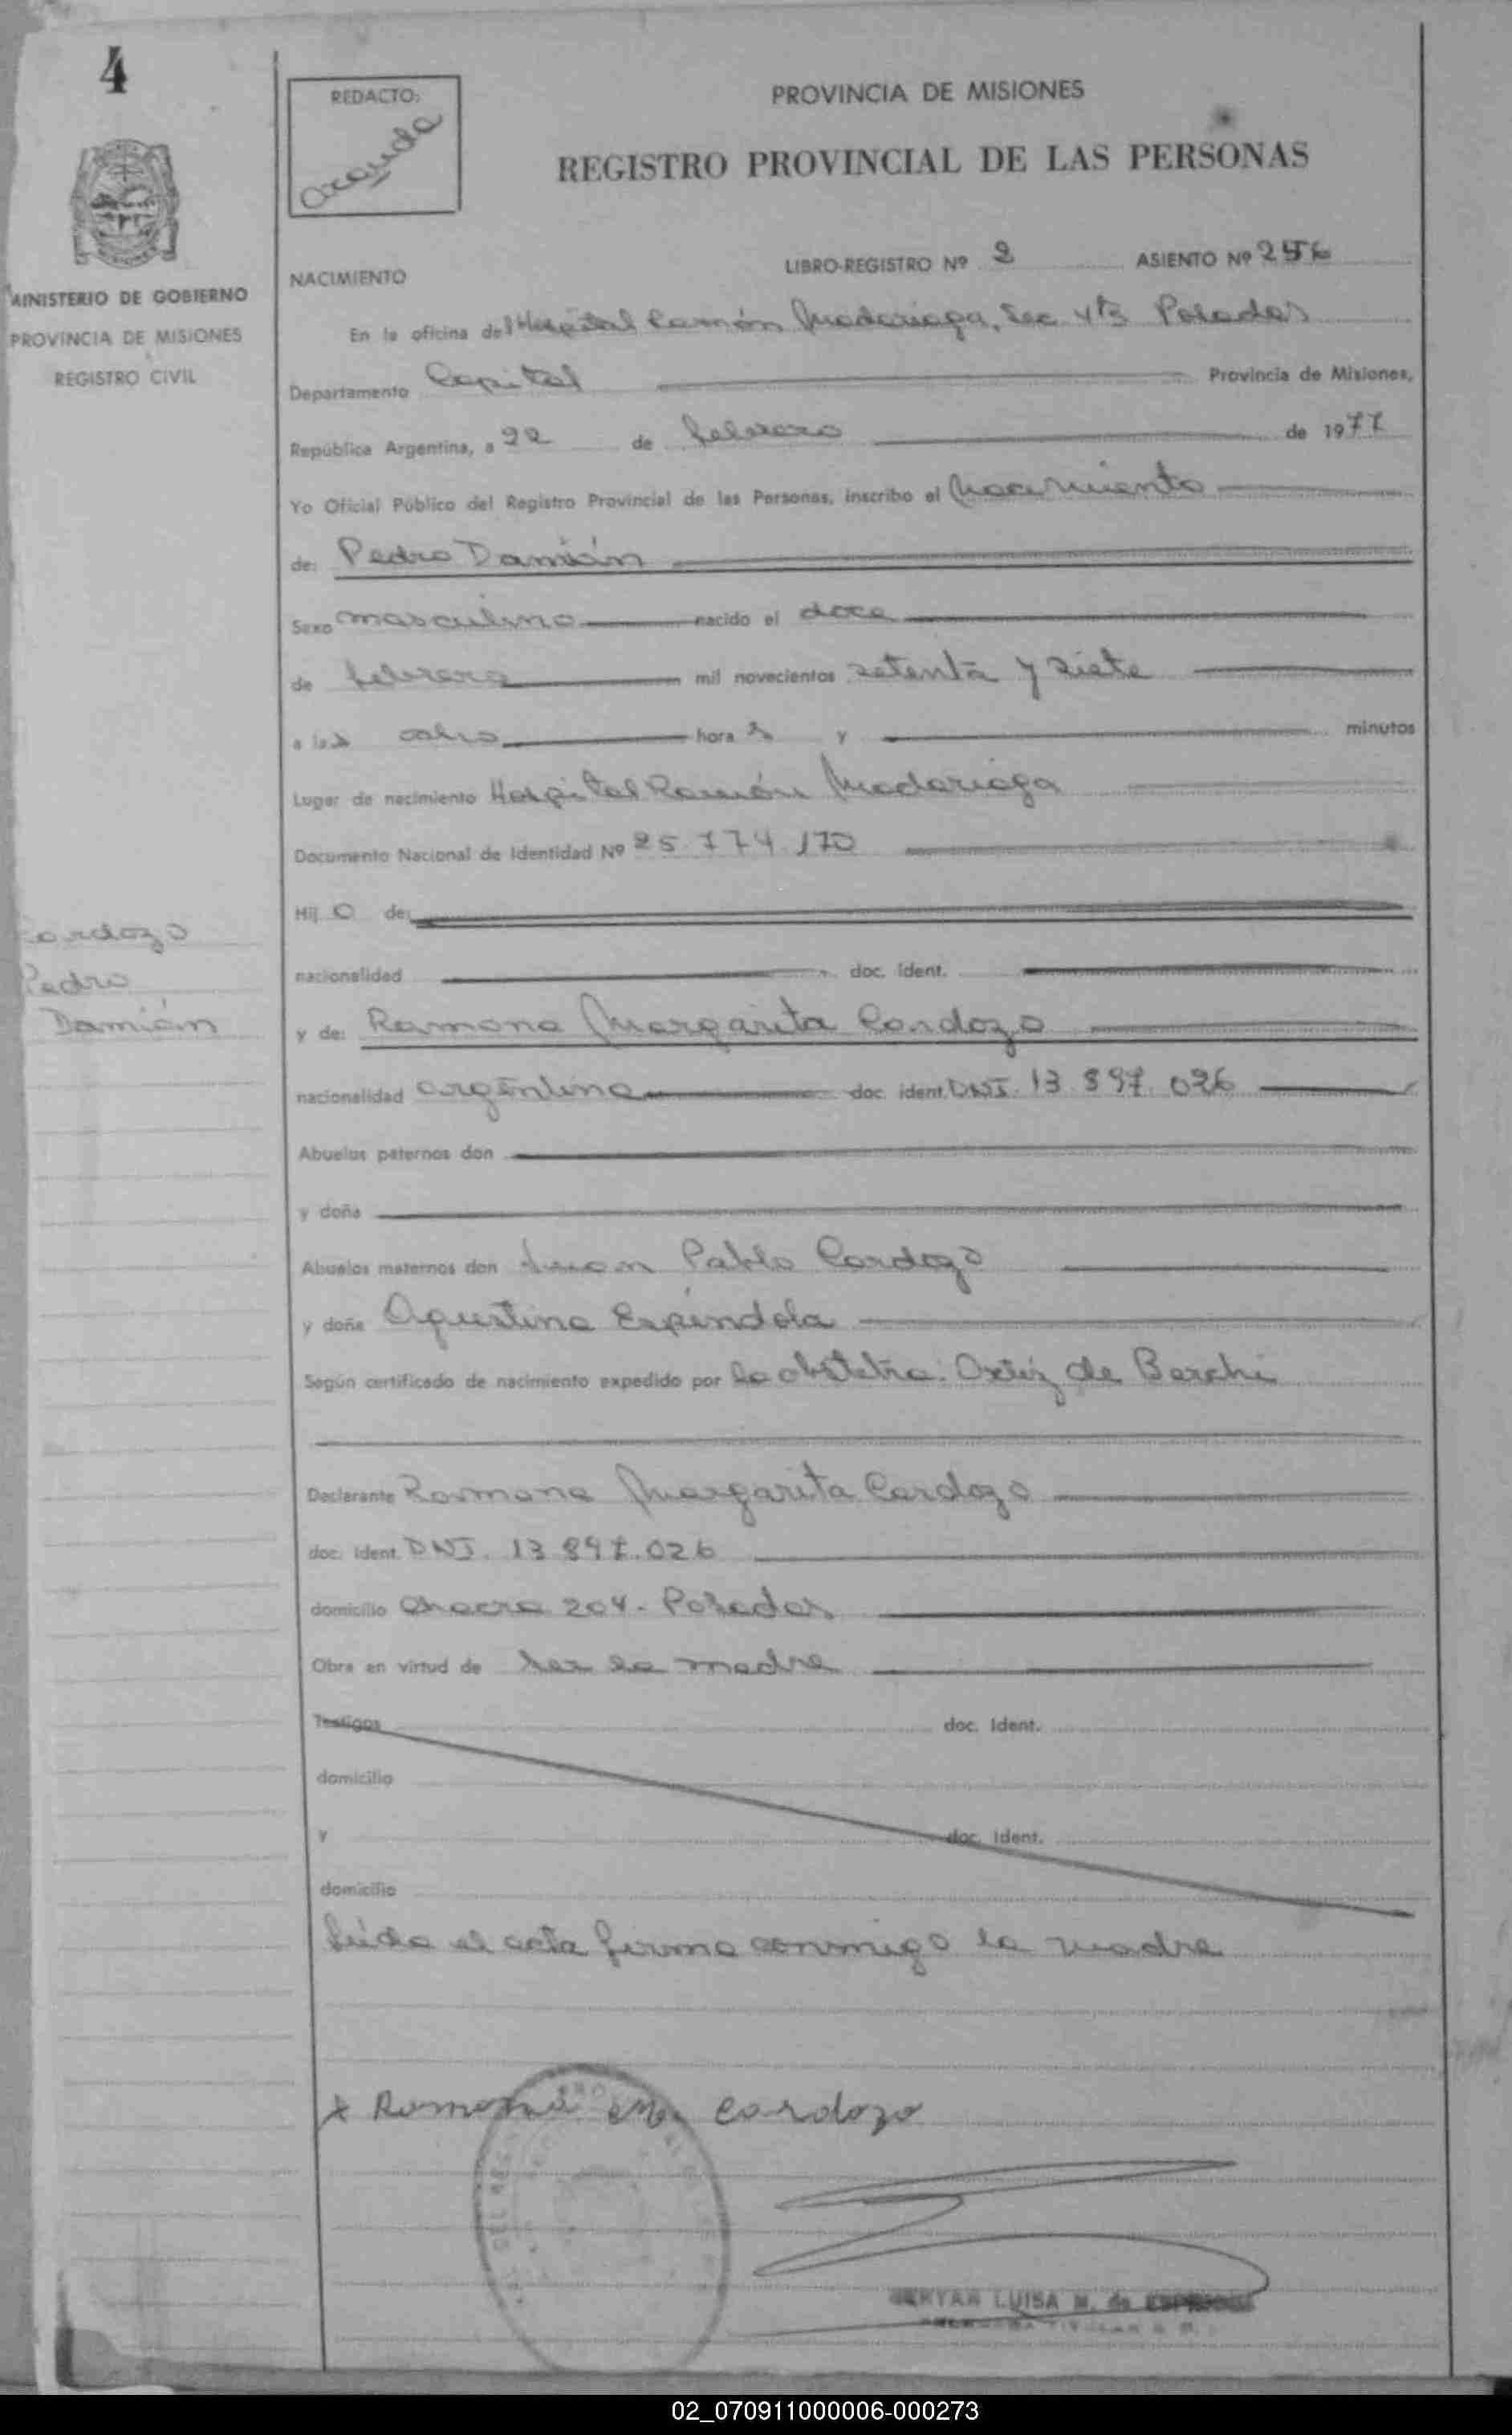 4
REDACTO:
Aranda
PROVINCIA DE MISIONES
REGISTRO PROVINCIAL DE LAS PERSONAS
MINISTERIO DE GOBIERNO
PROVINCIA DE MISIONES
REGISTRO CIVIL
NACIMIENTO
LIBRO-REGISTRO Nº 2 ASIENTO Nº 256
En la oficina del Hospital Ramón Madariaga, Sec. 4ta Posadas
Departamento Capital Provincia de Misiones,
República Argentina, a 22 de febrero de 1977
Yo Oficial Público del Registro Provincial de las Personas, inscribo el Nacimiento
de: Pedro Damián
Sexo masculino nacido el doce
de febrero mil novecientos setenta y siete
a las ocho horas y minutos
Lugar de nacimiento Hospital Ramón Madariaga
Documento Nacional de Identidad Nº 25.774.170
Hijo de:
nacionalidad doc. ident.
Cardozo
Pedro
Damián
y de: Ramona Margarita Cardozo
nacionalidad argentina doc. ident. DNI. 13.897.026
Abuelos paternos don
y doña
Abuelos maternos don Juan Pablo Cardozo
y doña Agustina Espíndola
Según certificado de nacimiento expedido por la obstetra: Ortíz de Berchi
Declarante Ramona Margarita Cardozo
doc. ident. DNI. 13.897.026
domicilio Chacra 204 - Posadas
Obra en virtud de ser la madre
Testigos doc. ident.
domicilio
y doc. ident.
domicilio
Leída el acta firma conmigo la madre
x Ramona Cardozo
LUISA M. de
02_070911000006-000273